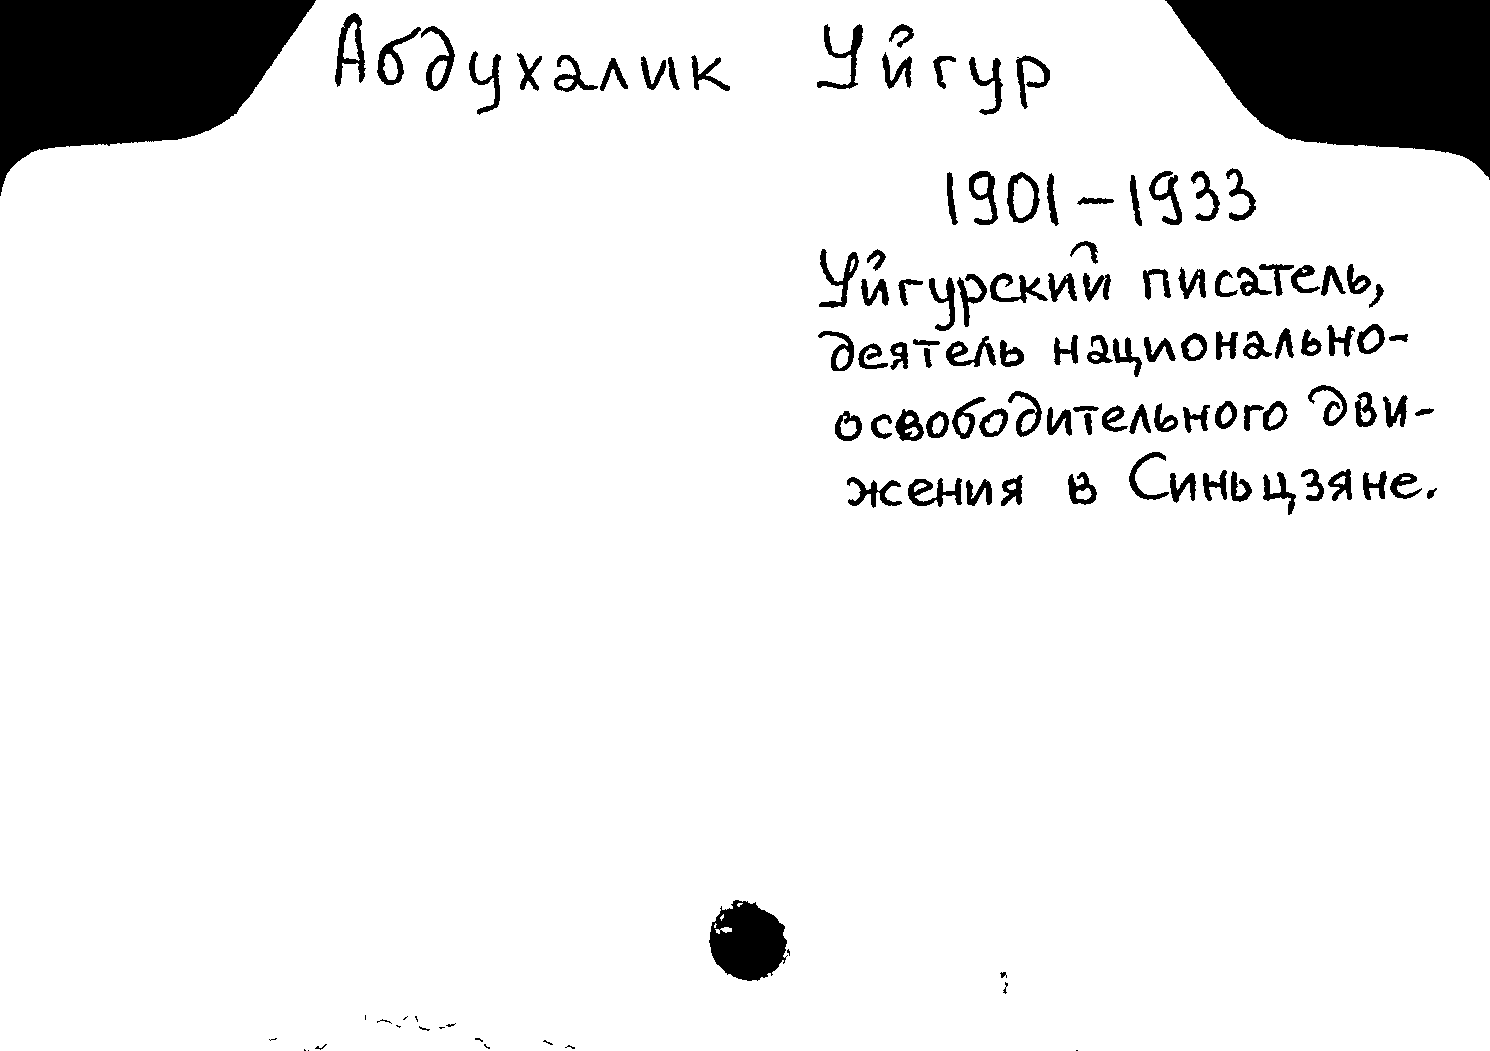 Абдухалик Уйгур
1901-1933
Уйгурский писатель,
деятель национально-
освободительного дви-
жения в Синьцзяне.